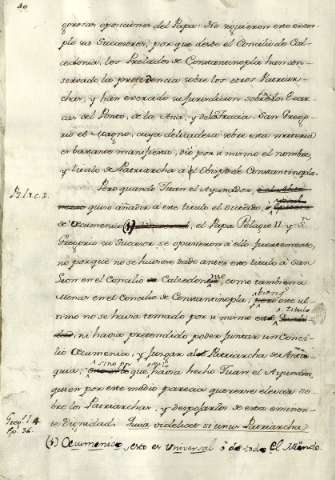 20
oposicion del Papa. No siguieron este exem-
plo sus Succesores, porque desde el Concilio de Cal-
cedonia, los Prelados de Constantinopla han con-
servado la precedencia sobre los otros Patriar-
chas, y han exercido su Jurisdiccion sobre los Exar-
cas del Ponto, de la Asia, y de la Thracia. San Grego-
rio el Magno, cuya delicadeza sobre esta materia
es bastante manifiesta, dio por si mismo el nombre,
y titulo de Patriarcha à el Obispo de Constantinopla.
Pero quando Juan el Ayunador,
quiso añadir à este titulo el
de Œcumenico (1), el Papa Pelagio II. y Sn
Gregorio su Succesor se opusieron à ello fuertemente,
no porque no se huviese dado antes este titulo à San
Leon en el Concilio de Calcedonia, como tambien à
Menas en el Concilio de Constantinopla, este ul-
timo no se havia tomado por si mismo este titulo
ni havia pretendido poder juntar un Conci-
lio Œcumenico, y Juzgar al Patriarcha de Antio-
quia, que havia hecho Juan el Ayunador,
quien por este medio parecia querer elevarse so-
bre los Patriarchas, y despojarlos de esta eminen-
te Dignidad.
(1) Œcumenico, esto es Universal ò de todo El Mundo